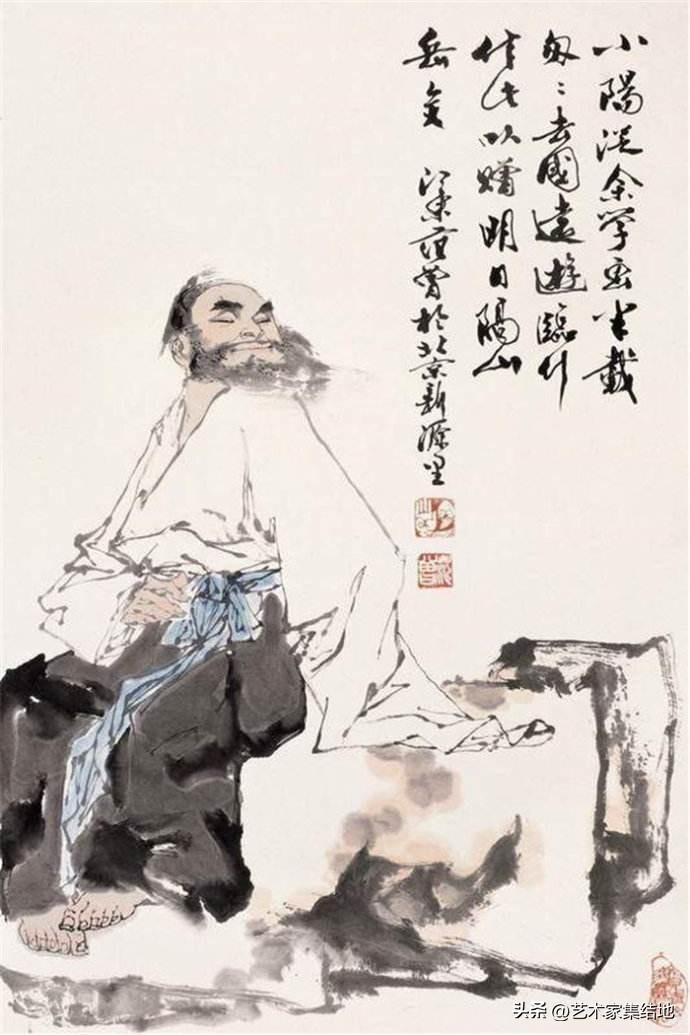 小陽從余学画半載
匆々去國遠遊臨行
作此以贈明日隔山
岳矣 江東范曾於北京新源里
范曾
头条 @艺术家集结地